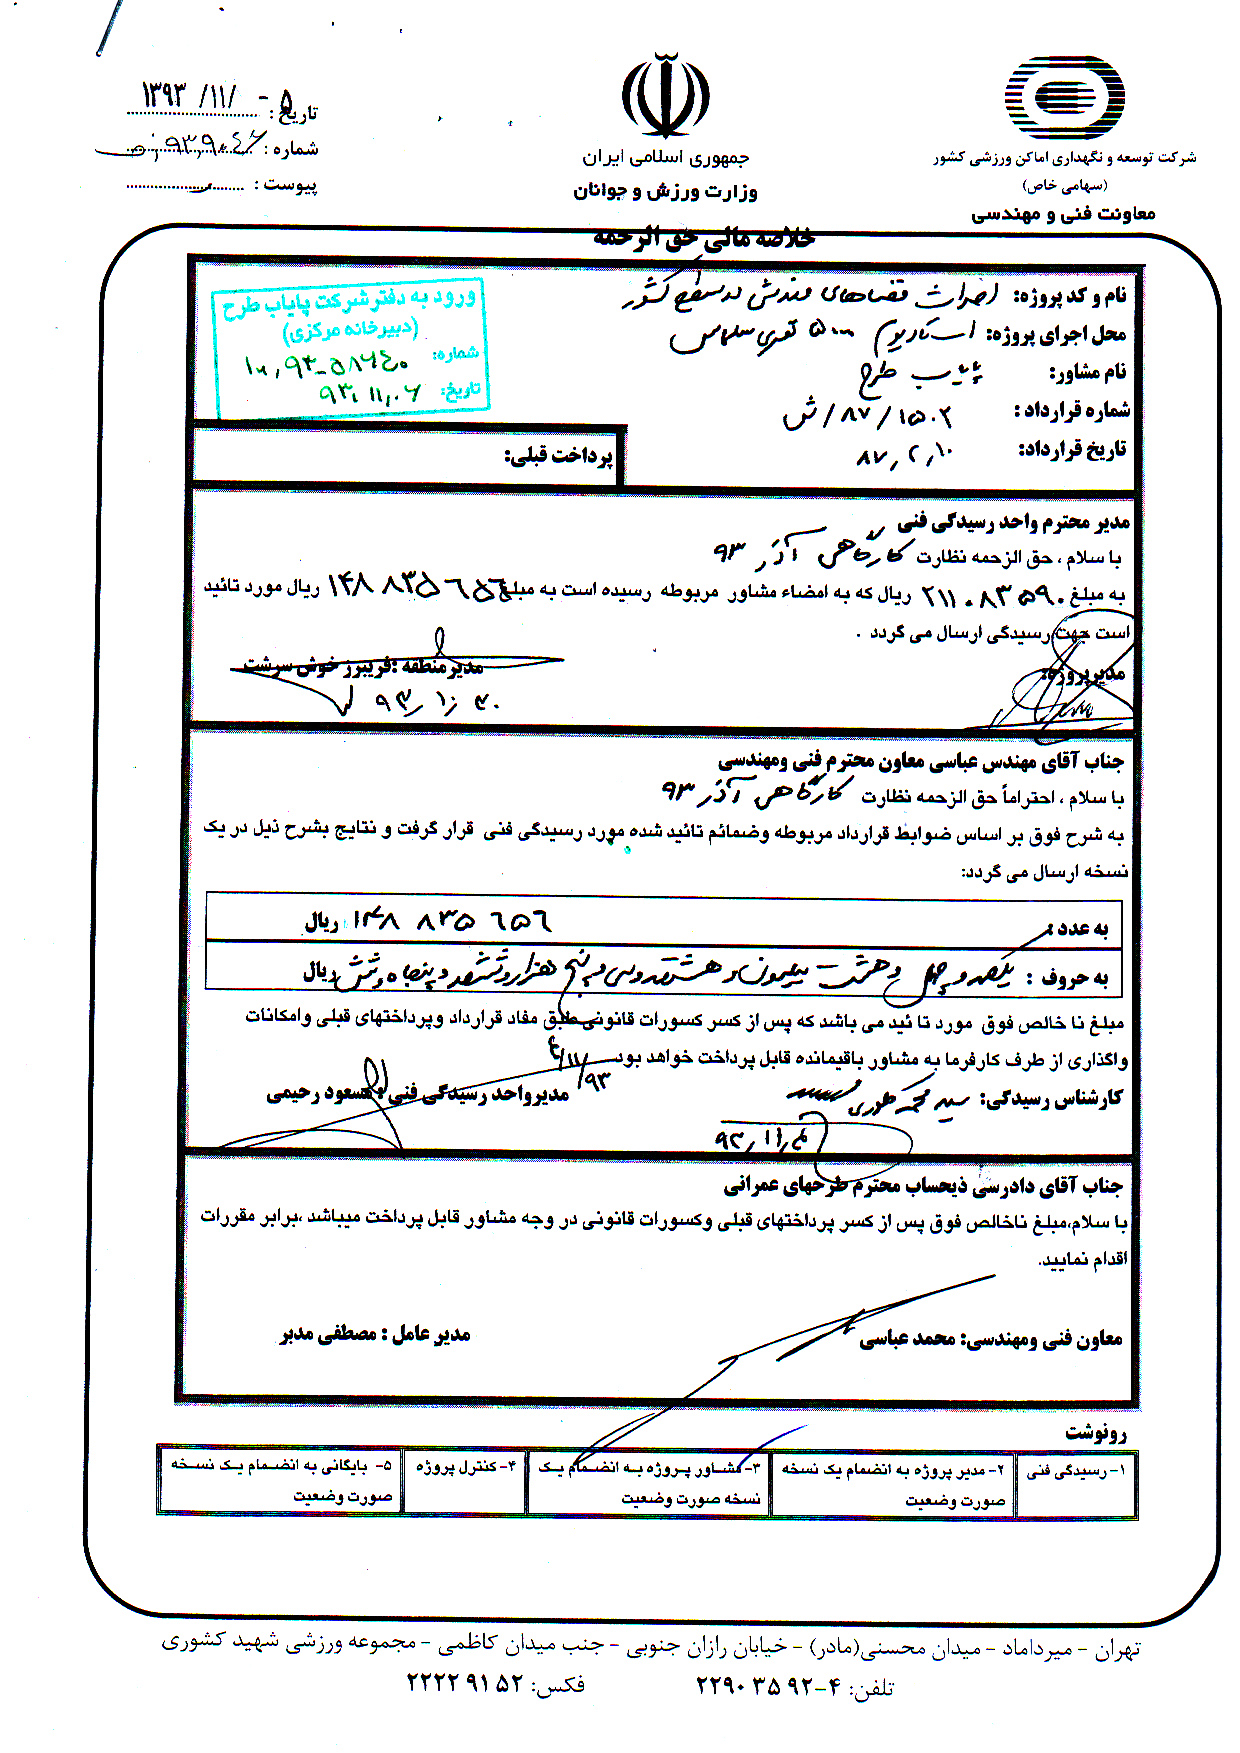 شرکت توسعه و نگهداری اماکن ورزشی کشور
(سهامی خاص)
معاونت فنی و مهندسی
جمهوری اسلامی ایران
وزارت ورزش و جوانان
تاریخ: ۱۳۹۳/۱۱/۰۵
شماره:
پیوست:
خلاصه مالی حق الزحمه
نام و کد پروژه: احداث فضاهای ورزشی در سطح کشور
محل اجرای پروژه: استادیوم ۵۰۰۰ نفری سلماس
نام مشاور: پایاب طرح
شماره قرارداد: ۱۵۰۲/۸۷/ش
تاریخ قرارداد: ۸۷,۲,۱۰
ورود به دفتر شرکت پایاب طرح
(دبیرخانه مرکزی)
شماره:
تاریخ: ۹۳,۱۱,۰۶
پرداخت قبلی:
مدیر محترم واحد رسیدگی فنی
با سلام ، حق الزحمه نظارت کارگاهی آذر ۹۳
به مبلغ ۲۱۱۰۸۳۵۹۰ ریال که به امضاء مشاور مربوطه رسیده است به مبلغ ۱۴۸۸۳۵۶۵۶ ریال مورد تائید
است جهت رسیدگی ارسال می گردد .
مدیرپروژه:
مدیر منطقه :فریبرز خوش سرشت
۹۳,۱۰,۳۰
جناب آقای مهندس عباسی معاون محترم فنی ومهندسی
با سلام ، احتراماً حق الزحمه نظارت کارگاهی آذر ۹۳
به شرح فوق بر اساس ضوابط قرارداد مربوطه وضمائم تائید شده مورد رسیدگی فنی قرار گرفت و نتایج بشرح ذیل در یک
نسخه ارسال می گردد:
به عدد : ۱۴۸ ۸۳۵ ۶۵۶ ریال
به حروف : یکصد و چهل و هشت میلیون و هشتصد و سی و پنج هزار و ششصد و پنجاه و شش ریال
مبلغ نا خالص فوق مورد تا ئید می باشد که پس از کسر کسورات قانونی طبق مفاد قرارداد وپرداختهای قبلی وامکانات
واگذاری از طرف کارفرما به مشاور باقیمانده قابل پرداخت خواهد بود
کارشناس رسیدگی: سید محمد
مدیرواحد رسیدگی فنی : مسعود رحیمی
جناب آقای دادرسی ذیحساب محترم طرحهای عمرانی
با سلام،مبلغ ناخالص فوق پس از کسر پرداختهای قبلی وکسورات قانونی در وجه مشاور قابل پرداخت میباشد ،برابر مقررات
اقدام نمایید.
معاون فنی ومهندسی: محمد عباسی
مدیر عامل : مصطفی مدبر
رونوشت
۱-رسیدگی فنی
۲- مدیر پروژه به انضمام یک نسخه صورت وضعیت
۳- مشاور پروژه به انضمام یک نسخه صورت وضعیت
۴- کنترل پروژه
۵- بایگانی به انضمام یک نسخه صورت وضعیت
تهران - میرداماد - میدان محسنی(مادر) - خیابان رازان جنوبی - جنب میدان کاظمی - مجموعه ورزشی شهید کشوری
تلفن: ۴-۲۲۹۰۳۵۹۲ فکس: ۲۲۲۲۹۱۵۲